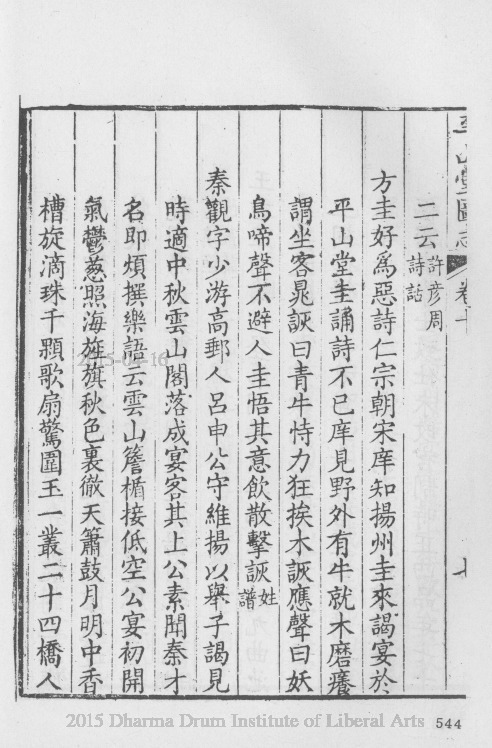 平山堂圖志 卷十 七
二云許彦周詩話
方圭好爲惡詩仁宗朝宋庠知揚州圭來謁宴於
平山堂圭誦詩不已庠見野外有牛就木磨癢
謂坐客晁詼曰青牛恃力狂挨木詼應聲曰妖
鳥啼聲不避人圭悟其意飲散擊詼姓譜
秦觀字少游高郵人呂申公守維揚以舉子謁見
時適中秋雲山閣落成宴客其上公素聞秦才
名即煩撰樂語云雲山簷楯接低空公宴初開
氣鬱葱照海旌旗秋色裏徹天簫鼓月明中香
槽旋滴珠千顆歌扇驚圍玉一叢二十四橋人
2015-04-16
2015 Dharma Drum Institute of Liberal Arts 544